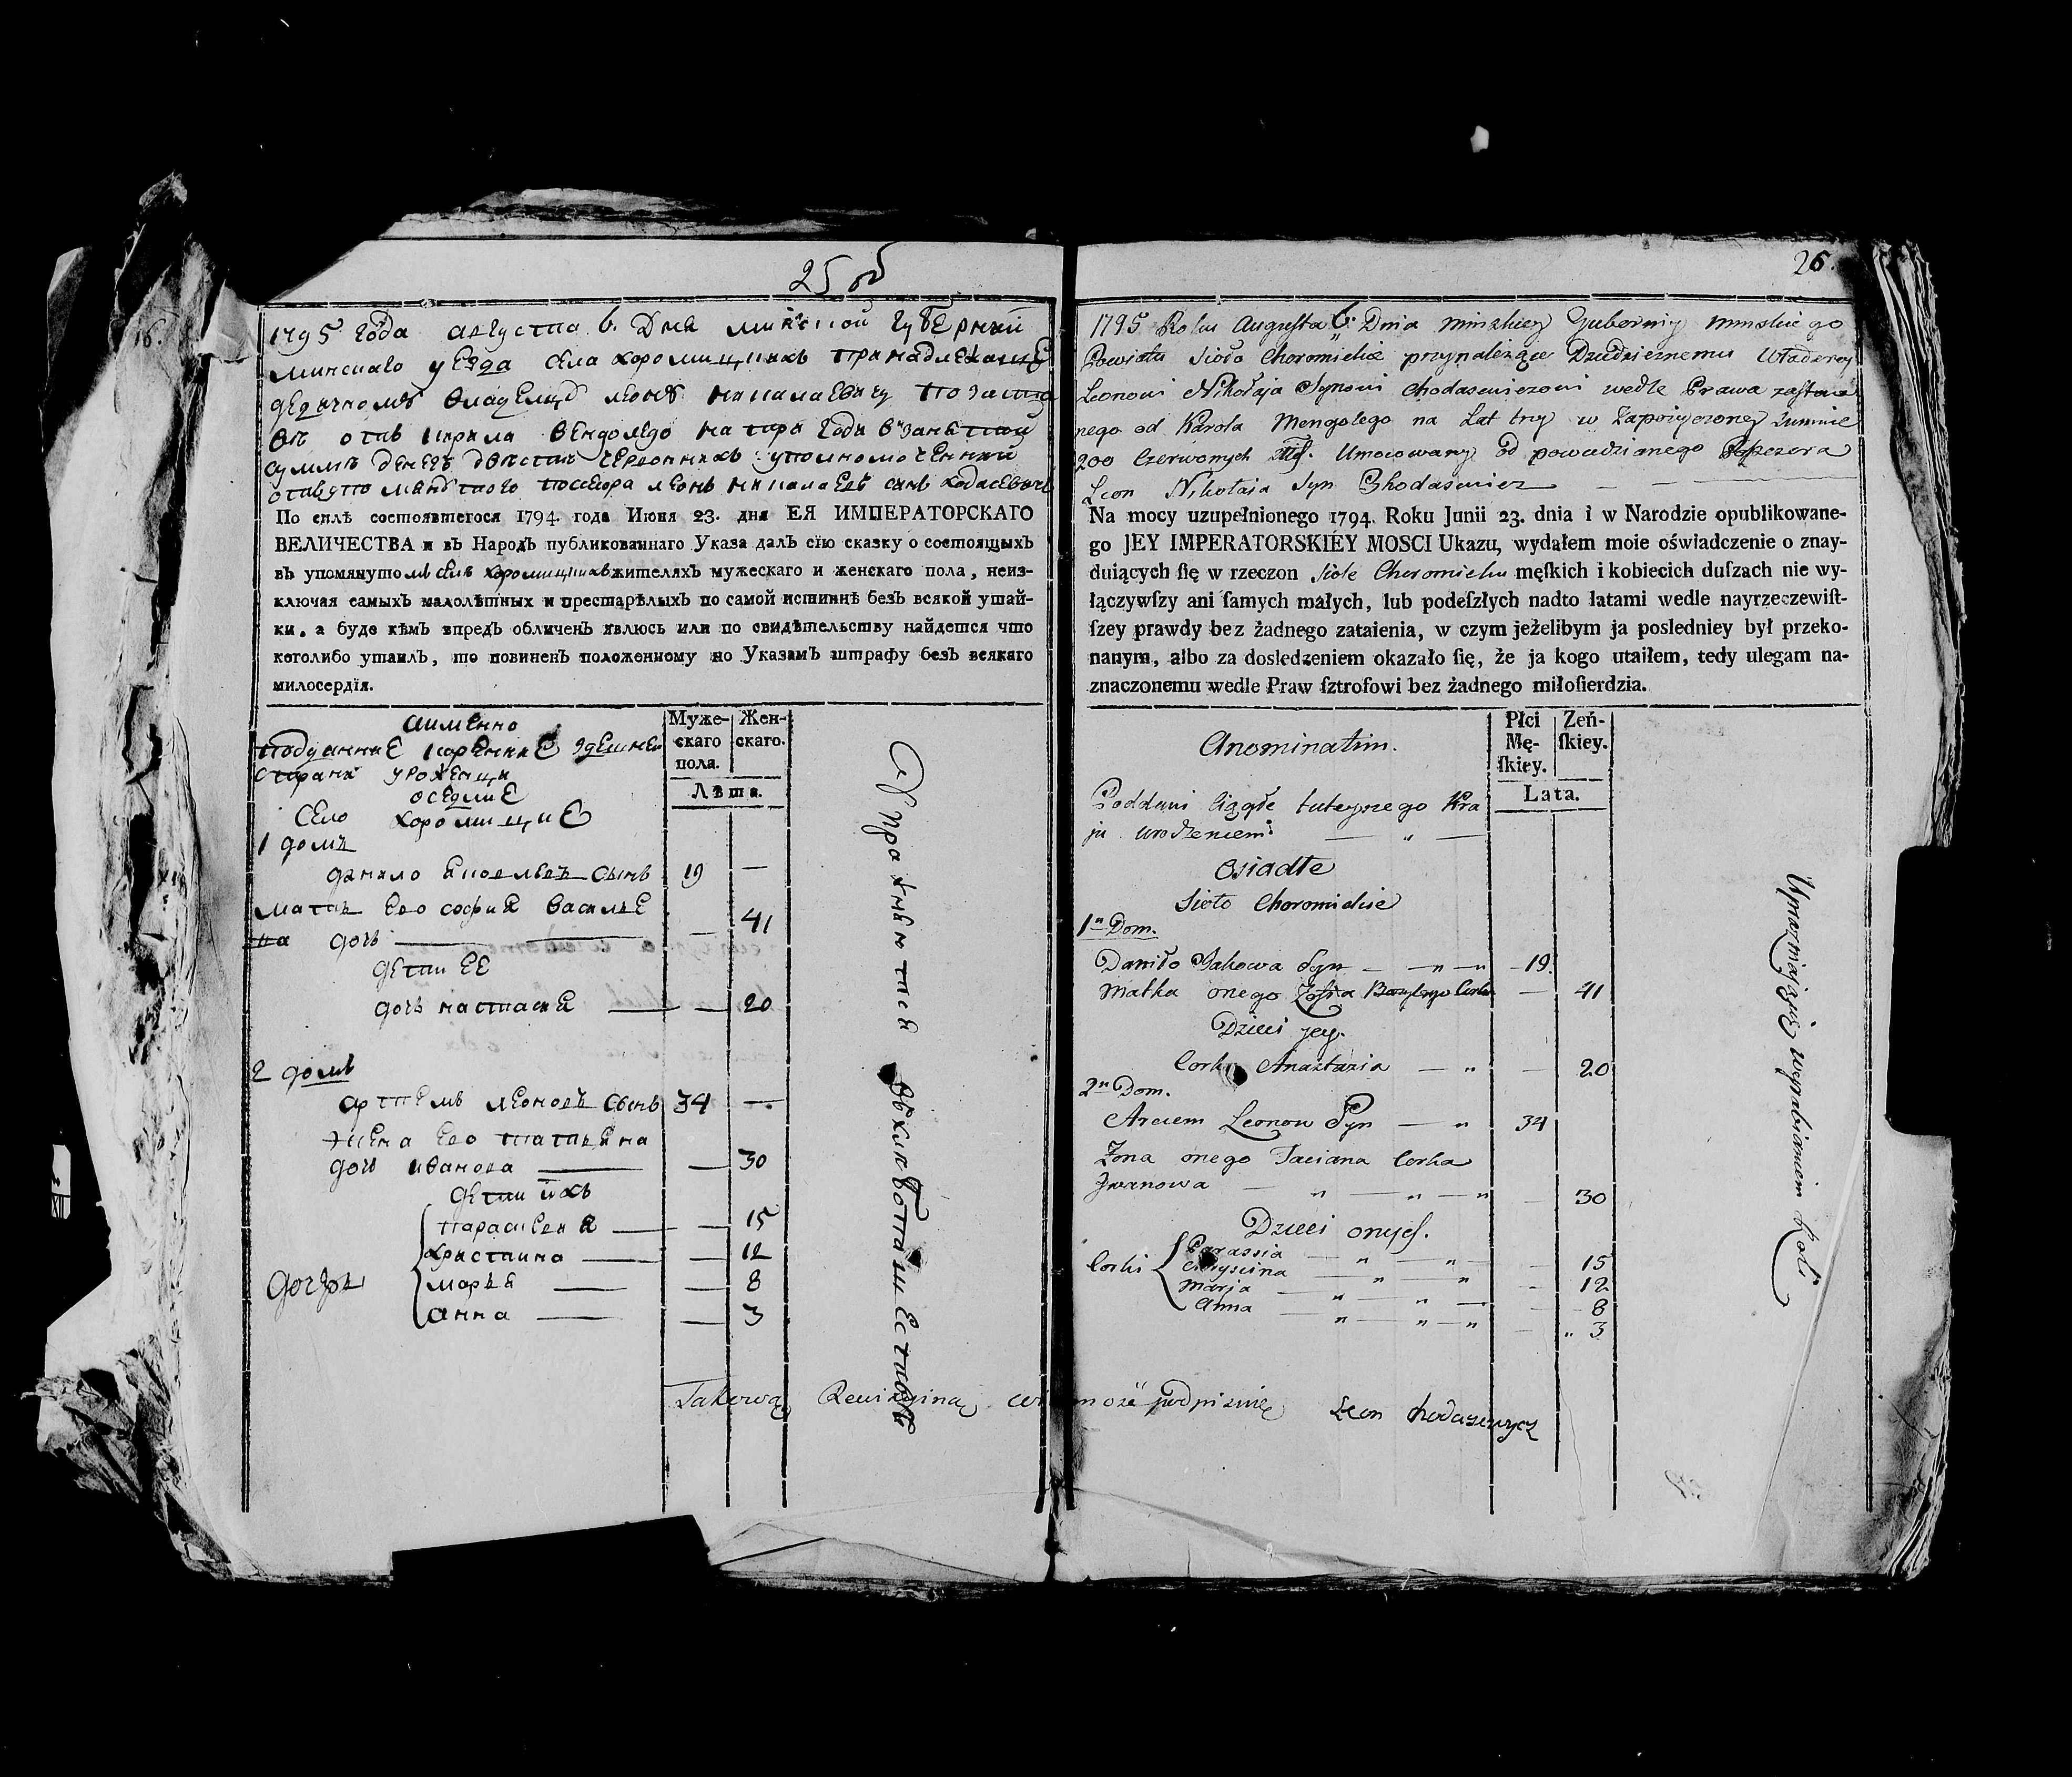 25 об
1795 года августа 6. Дня минской губернии
минскаго уезда села хоромицкихъ принадлежаще
дедичномъ владельцу леонъ николаевичу по заста
на три года в
сумме денегъ двести червонныхъ уполномоченний
посесора леонъ николаевъ синъ ходасевичъ
По силѣ состоявшегося 1794. года Июня 23. дня ЕЯ ИМПЕРАТОРСКАГО
ВЕЛИЧЕСТВА и въ Народъ публикованнаго Указа далъ сїю сказку о состоящыхъ
въ упомянутомъ селе хоромицкихъ жителяхъ мужескаго и женскаго пола, неиз-
ключая самыхъ малолѣтныхъ и престарѣлыхъ по самой истиннѣ безъ всякой утай-
ки. а буде кѣмъ впредъ обличенъ явлюсь или по свидѣтельству найдется что
коголибо утаилъ, то повиненъ положенному по Указамъ штрафу безъ всякаго
милосердїя.
аименно
Муже-
скаго
пола.
Жен-
скаго.
Лѣта.
подданние коренние здешнеи
старани уроженци
оседлие
Село хоромицкие
1 домъ
данило яковлевъ синъ 19 —
матъ его софия василье
ва дочь — 41
дети ее
дочь настасия — 20
2 домъ
артиемъ леоновъ синъ 34 —
жена его татьяна
дочь иванова — 30
дети ихъ
парасковия — 15
христина — 12
дочери
марья — 8
анна — 3
Упражняются земледелием
26.
1795 Roku Augusta 6. Dnia minskiey Gubernij minskiego
Powiatu Sioło Choromickie przynależące Dziedzicznemu Władercy
Leonowi Nikołaja Synowi Chodasewiczowi wedle Prawa zastaw
nego od Karola Mengolego na Lat try w Zapożyczoney Summie
200 Czerwonych Złł. Umocowany od powiedzianego Possesora
Leon Nikołaja Syn Chodasewicz — — —
Na mocy uzupełnionego 1794. Roku Junii 23. dnia i w Narodzie opublikowane-
go JEY IMPERATORSKIÉY MOSCI Ukazu, wydałem moie oświadczenie o znay-
duiących ſię w rzeczon Siole Choromicku męſkich i kobiecich duſzach nie wy-
łączywſzy ani ſamych małych, lub podeſzłych nadto latami wedle nayrzeczewiſt-
ſzey prawdy bez żadnego zataienia, w czym jeżelibym ja posledniey był przeko-
nanym, albo za dosledzeniem okazało ſię, że ja kogo utaiłem, tedy ulegam na-
znaczonemu wedle Praw ſztrofowi bez żadnego miłoſierdzia.
Anominatim.
Płci
Mę-
ſkiey.
Zeń-
ſkiey.
Lata.
Poddani Ciągłe tuteyszego Kra
ju urodzeniem — „ —
Osiadłe
Sioło Choromickie
1n Dom.
Daniło Jakowa Syn — „ — „ 19.
Matka onego Zofia Bazylego Corka — 41
Dzieci jey.
Corka Anastazia — „ — 20
2n Dom.
Arciem Leonow Syn — „ 34
Zona onego Taciana Corka
Jwanowa — „ — „ — „ — 30
Dzieci onych.
Corki
Parassia — „ — „ — 15
Chrystina — „ — „ — 12
Marja — „ — „ — 8
Anna — „ — „ — „ 3
Uprazniają się wyrabianiem Roli
Takową Rewizyiną podpisuię Leon Chodasewycz